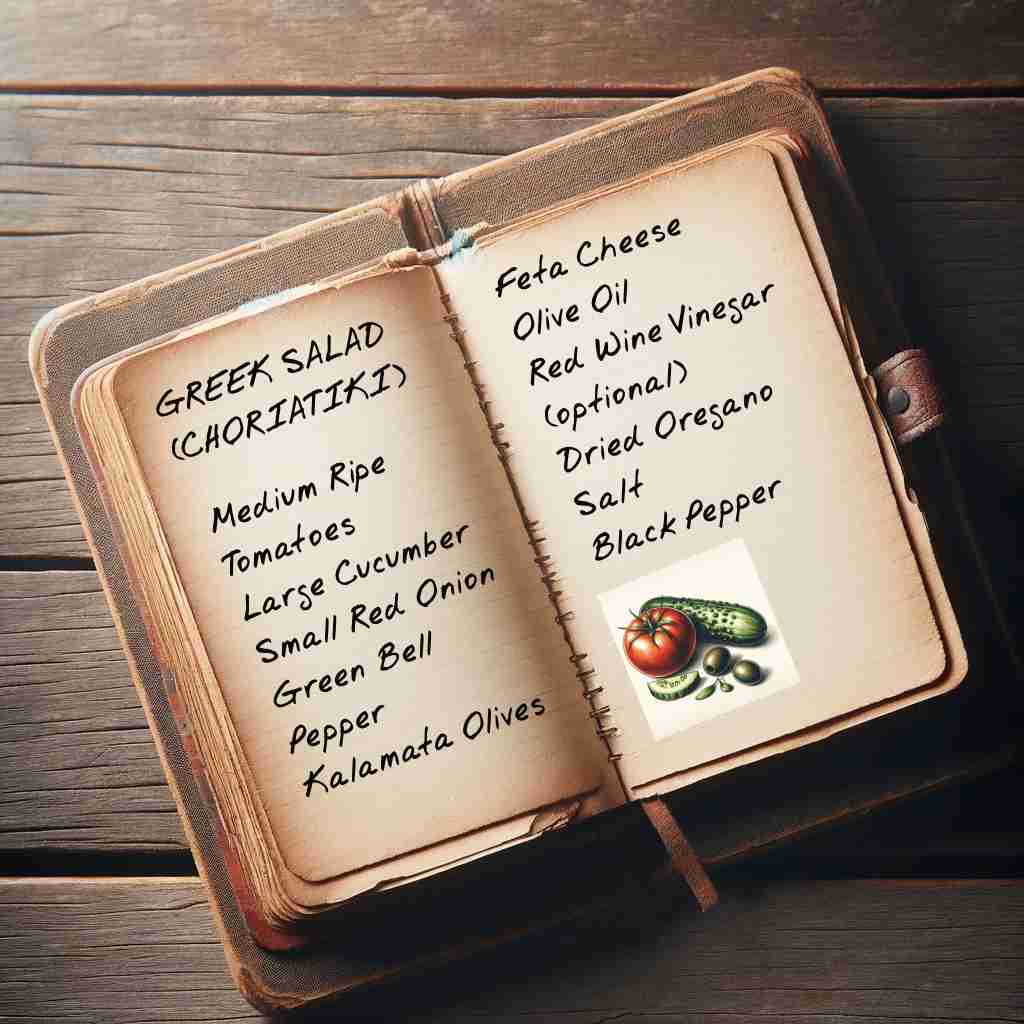 GREEK SALAD
(CHORIATIKI)
Medium Ripe
Tomatoes
Large Cucumber
Small Red Onion
Green Bell
Pepper
Kalamata Olives
Feta Cheese
Olive Oil
Red Wine Vinegar
(optional)
Dried Oregano
Salt
Black Pepper